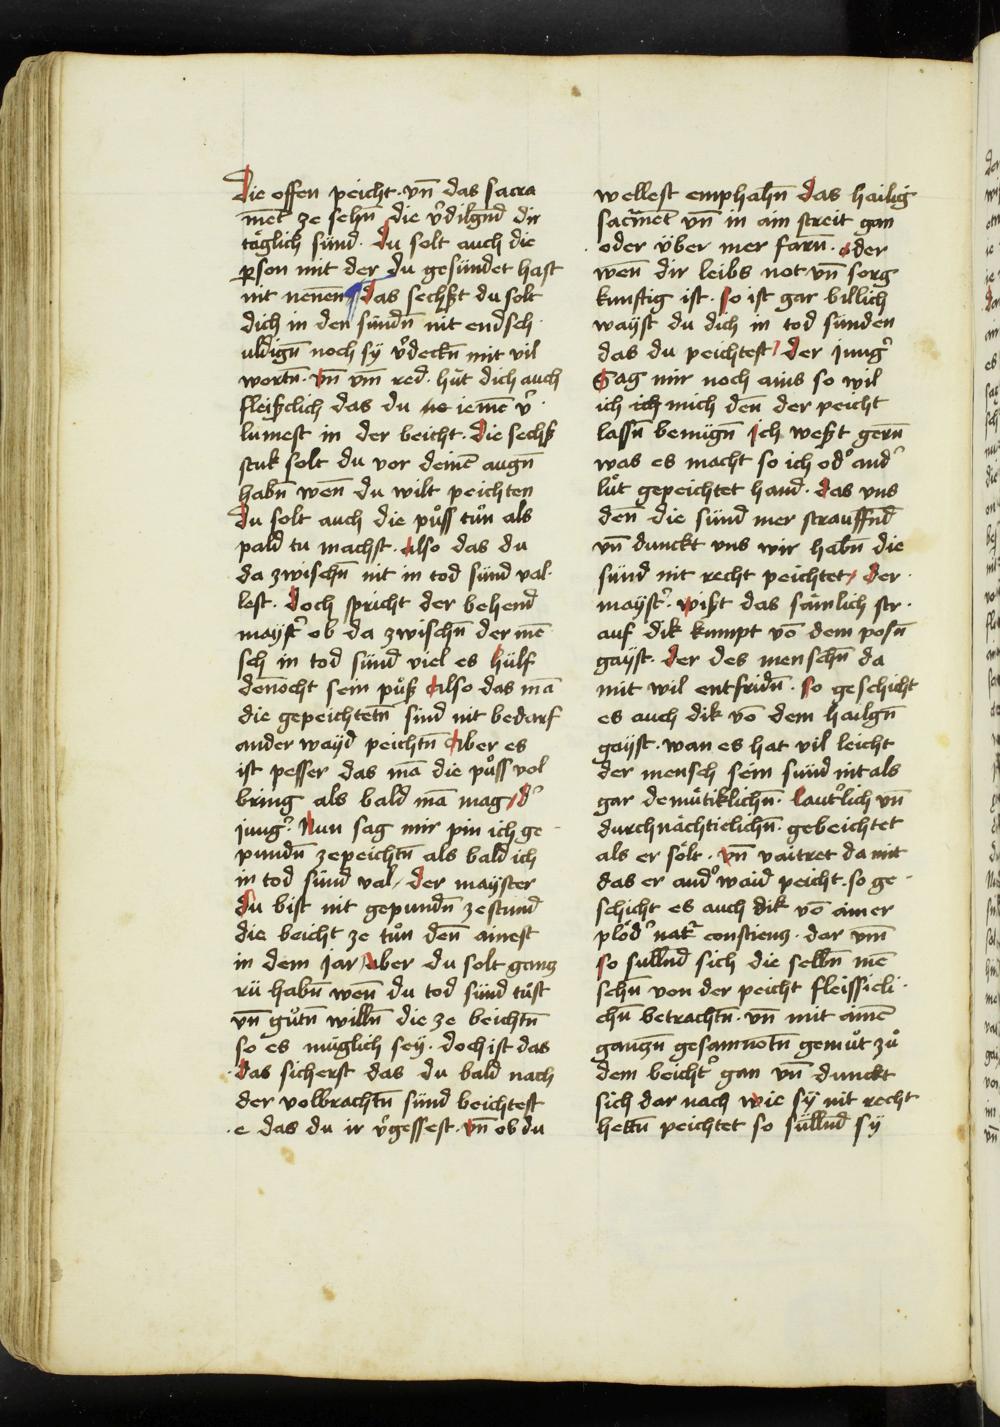 Die offen peicht · vn̄ das sacra
ment ze sehn̄ die v̓dilgnd dir
täglich sünd · Du solt auch die
ꝑson mit der du gesündet hast
nit nenen̄ ¶ das sechßt du solt
dich in den sündn̄ nit endsch
uldign̄ noch sy v̓deckn̄ mit vil
wortn̄ · vn̄ vm̄ red · hüt dich auch
fleißclich das du ne iemē v̓
lumest in der beicht · Die sechß
stuk solt du vor deinē augn̄
habn̄ wen̄ du wilt peichten
Du solt auch die půss tůn als
pald tu machst · Also das du
da zwischn̄ nit in tod sünd val
lest · Doch spricht der behend
mayst̓ ob da zwischn̄ der mē
sch in tod sünd viel es hülf
den̄ocht sein půß Also das mā
die gepeichtetn̄ sünd nit bedarf
ander wayd peichtn̄ Aber es
ist pesser das mā die půss vol
bring als bald mā mag / d̓
jung̓ · Nun sag mir pin ich ge
pundn̄ zepeichtn̄ als bald ich
in tod sünd val / der mayster
Du bist nit gepundn̄ zestund
die beicht ze tůn den̄ ainest
in dem Jar Aber du solt gancz
rü habn̄ wen̄ du tod sünd tůst
vn̄ gůtn̄ willn̄ die ze beichtn̄
so es müglich sey · doch ist das
das sicherst das du bald nach
der volbrachtn̄ sünd beichtest
e das du ir v̓gessest · vn̄ ob du
wellest emphahn̄ das hailig
sacrmēt vn̄ in ain streit gan
oder über mer farn̄ · oder
wen̄ dir leibs not vn̄ sorg
kunftig ist · so ist gar billich
wayst du dich in tod sünden
das du peichtest / der jung̓
Sag mir noch ains so wil
ich ich mich den̄ der peicht
lassn̄ benügn̄ Ich weßt gern̄
was es macht so ich od̓ and̓
lüt gepeichtet hand · das vns
den̄ die sünd mer strauffnd
vn̄ dunckt vns wir habn̄ die
sünd nit recht peichtet / der
mayst̓ · wißt das sämlich str
auf dik kumpt vō dem posn̄
gayst · der des menschn̄ da
mit wil entfridn̄ · so geschicht
es auch dik vō dem hailgn̄
gayst · wan es hat vil leicht
der mensch sein sünd nit als
gar demütiklichn̄ · laut̓lich vn̄
durchnächticlichn̄ · gebeichtet
als er sölt · vn̄ vaitret da mit
das er and̓ waid peicht · so ge
schicht es auch dik vō ainer
plöd̓ nat̓ conscienz · dar vm̄
so sullnd sich die selbn̄ mē
schn̄ von der peicht fleissicli
chn̄ betrachtn̄ · vn̄ mit ainē
ganczn̄ gesamnotn̄ gemüt zů
dem beicht̓ gan vn̄ dunckt
sich dar nach wie sy nit recht
hettn̄ peichtet so süllnd sy